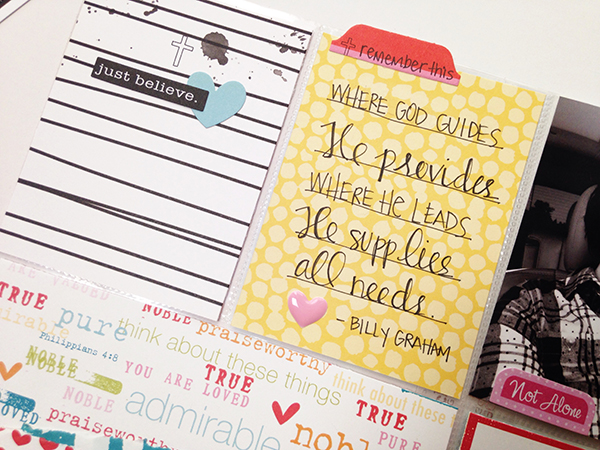 just believe.
remember this
WHERE GOD GUIDES
He provides
WHERE HE LEADS
He supplies
all needs.
- BILLY GRAHAM
Not Alone
ARE VALUED
TRUE pure NOBLE praiseworthy
admirable think about these things
Philippians 4:8 TRUE think about these
NOBLE YOU ARE LOVED
NOBLE admirable TRUE
LOVED praiseworthy noble PURE